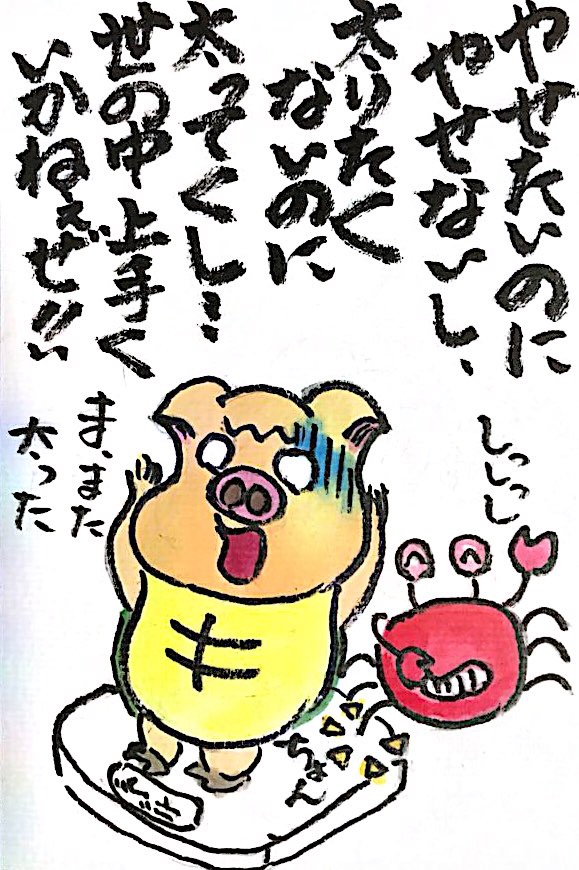 やせたいのに
やせないし、
太りたく
ないのに
太ってくし…
世の中上手く
いかねぇぜ!!い
しっしっし
ま、また
太った
キ
ちょん